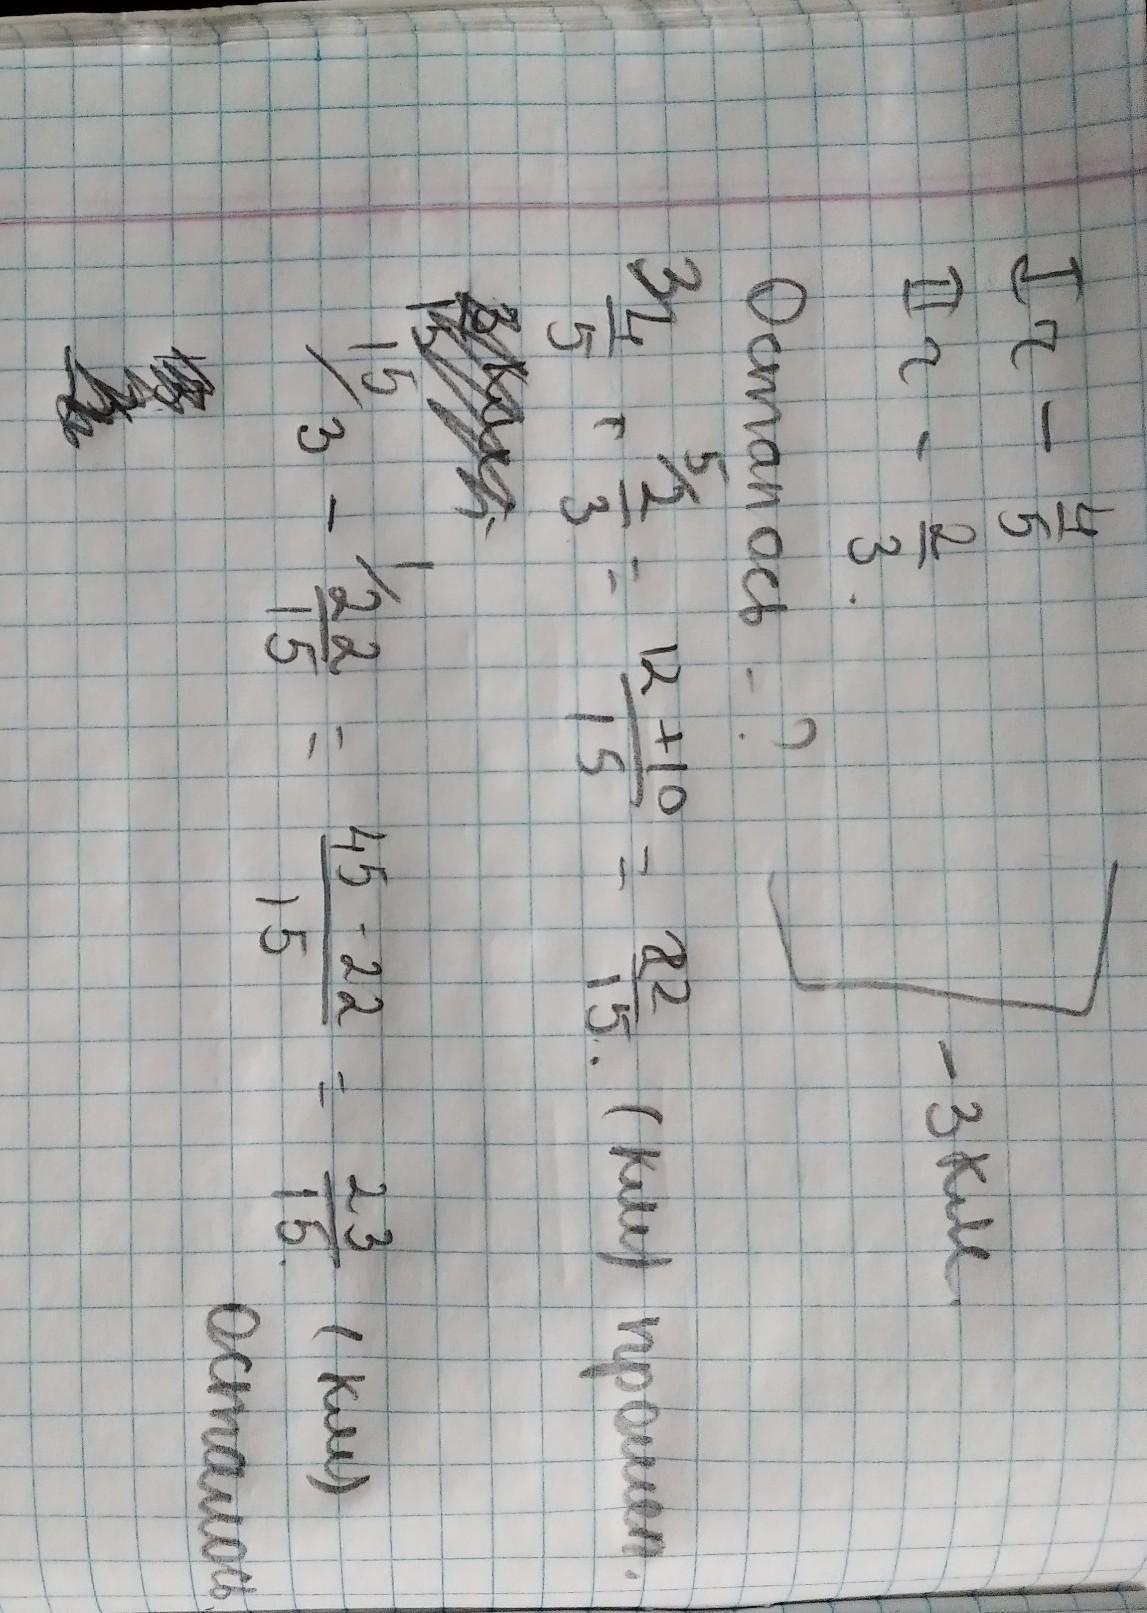 I ч - 4/5
II ч - 2/3.
- 3 км.
Осталось - ?
3/ 4/5 + 5/ 2/3 = 12+10/15 = 22/15. (км) прошел.
15/ 3 - 1/ 22/15 = 45-22/15 = 23/15. (км)
осталось